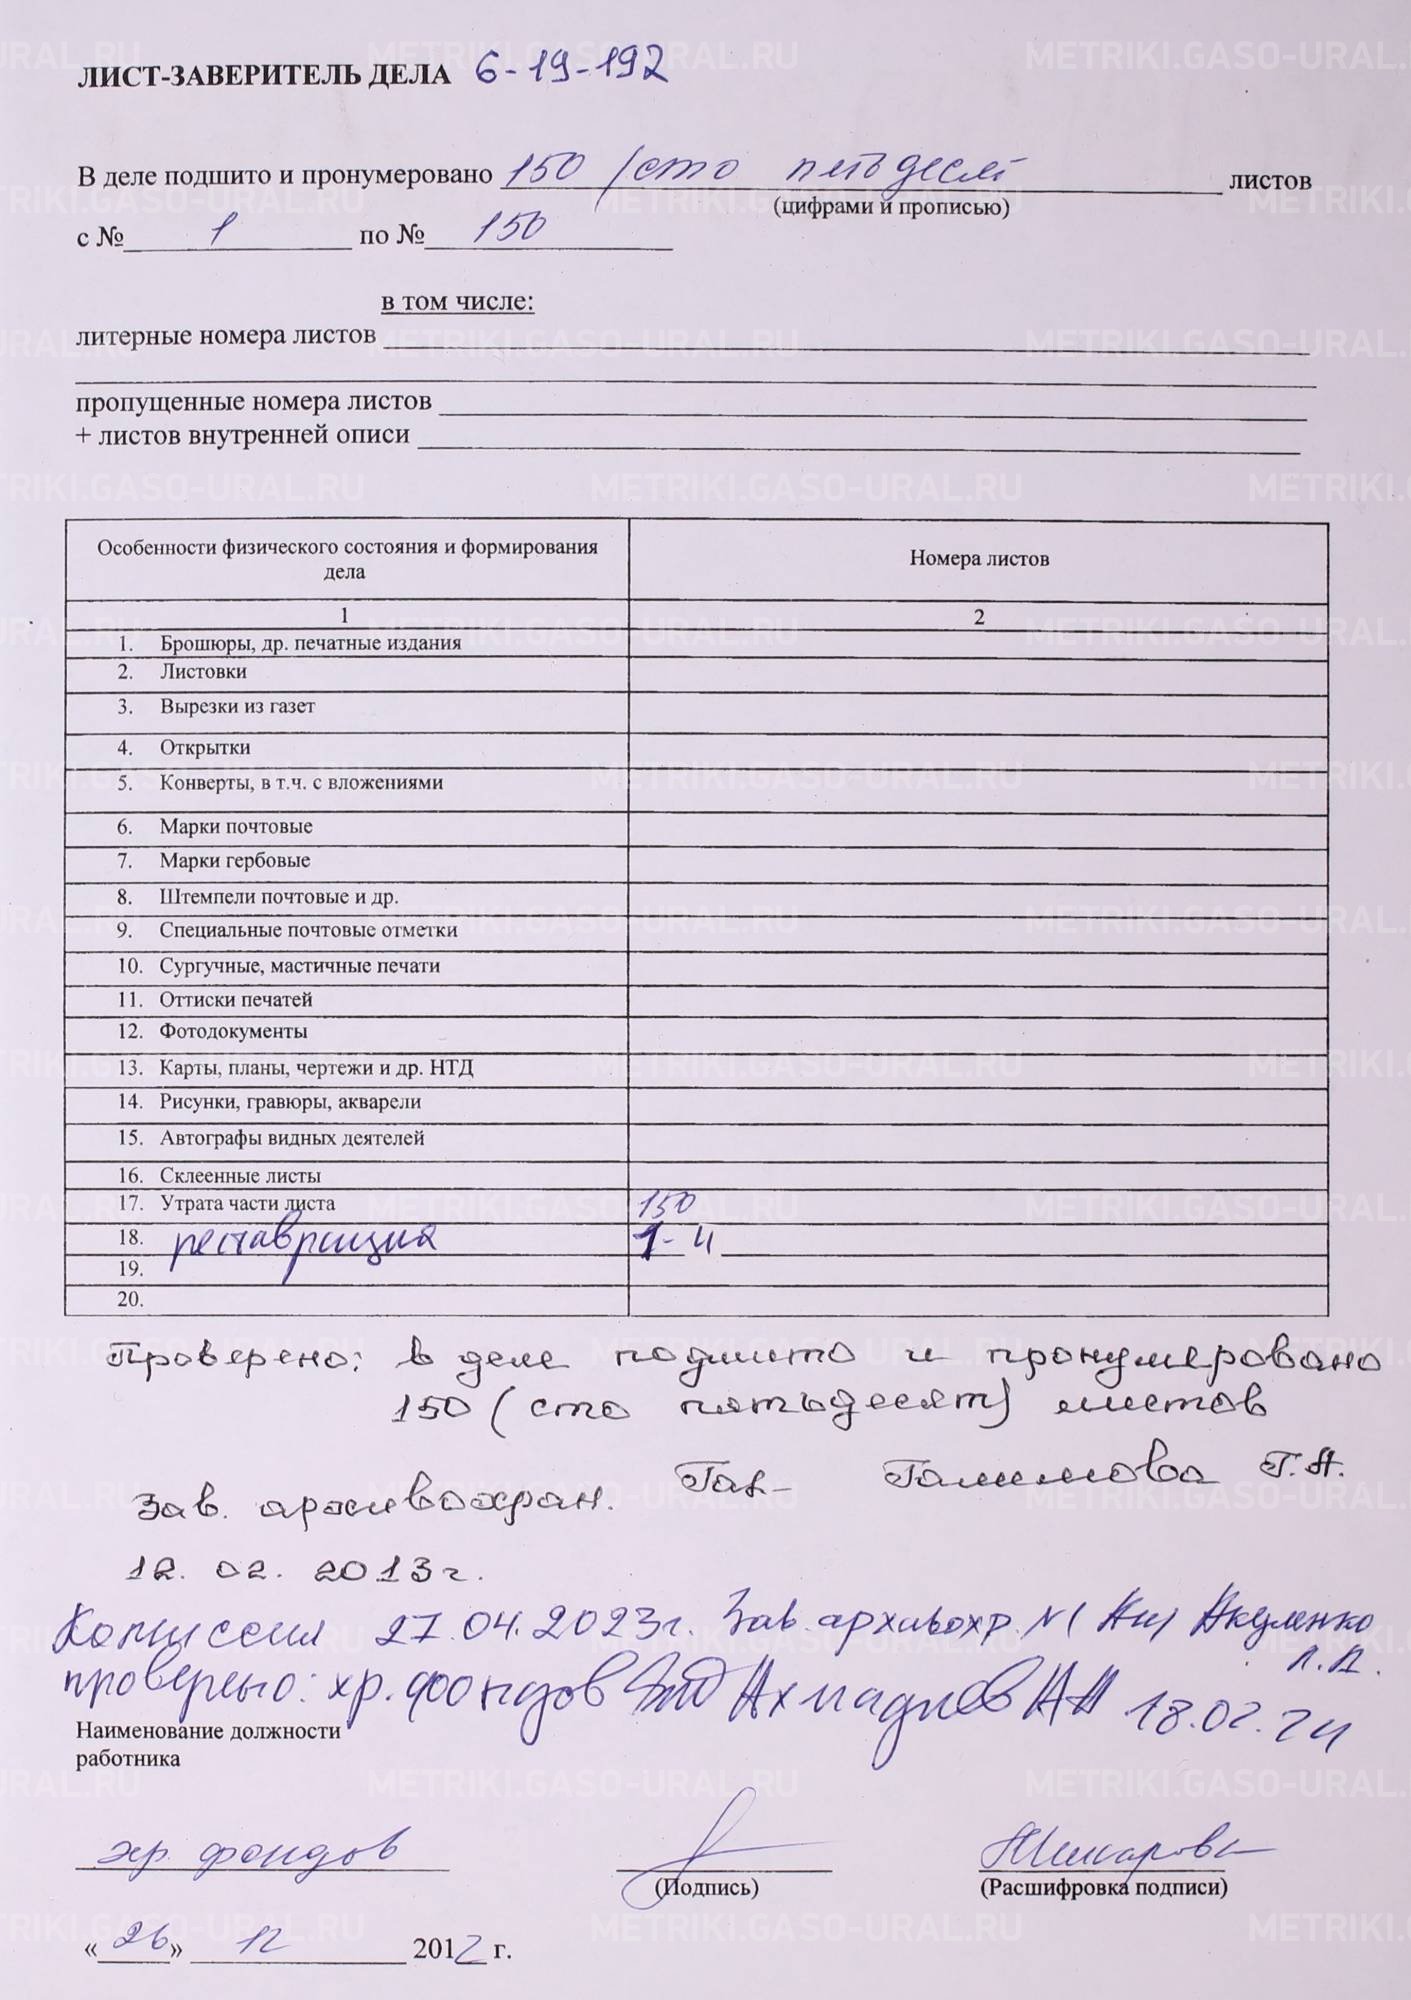 ЛИСТ-ЗАВЕРИТЕЛЬ ДЕЛА 6-19-192
В деле подшито и пронумеровано 150 (сто пятьдесят листов
(цифрами и прописью)
с № 1 по № 150
в том числе:
литерные номера листов
пропущенные номера листов
+ листов внутренней описи
Особенности физического состояния и формирования дела Номера листов
1 2
1. Брошюры, др. печатные издания
2. Листовки
3. Вырезки из газет
4. Открытки
5. Конверты, в т.ч. с вложениями
6. Марки почтовые
7. Марки гербовые
8. Штемпели почтовые и др.
9. Специальные почтовые отметки
10. Сургучные, мастичные печати
11. Оттиски печатей
12. Фотодокументы
13. Карты, планы, чертежи и др. НТД
14. Рисунки, гравюры, акварели
15. Автографы видных деятелей
16. Склеенные листы
17. Утрата части листа 150
18. реставрация 1-4
19.
20.
Проверено: в деле подшито и пронумеровано
150 (сто пятьдесят) листов
Зав. архивохран. Гал- Галимова Г.А.
12.02.2013г.
Комиссия 27.04.2023г. Зав. архивохр. №1 Акуленко
Л.А.
проверено: хр. фондов Ахмадиев АА 18.02.24
Наименование должности
работника
хр. фондов
(Подпись) (Расшифровка подписи)
«26» 12 2012 г.
METRIKI.GASO-URAL.RU